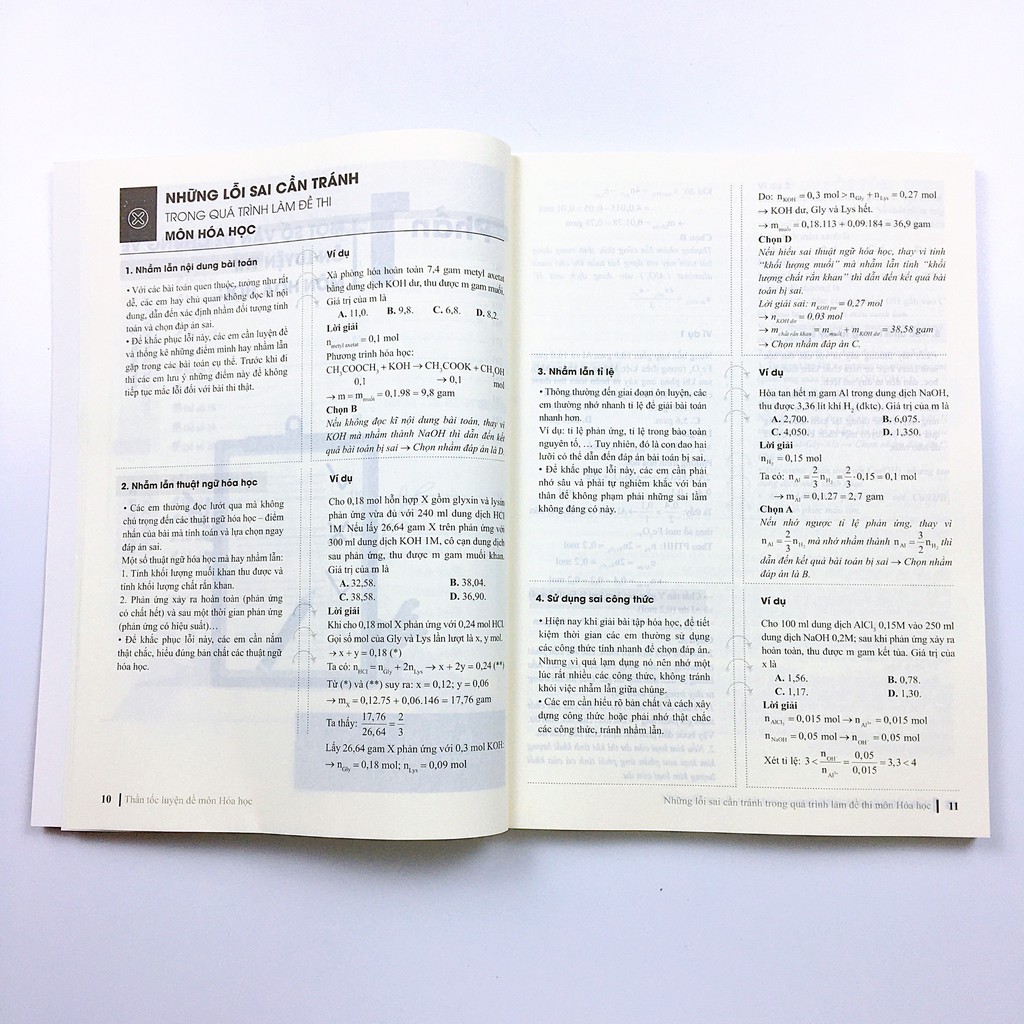 NHỮNG LỖI SAI CẦN TRÁNH
TRONG QUÁ TRÌNH LÀM ĐỀ THI
MÔN HÓA HỌC
1. Nhầm lẫn nội dung bài toán
• Với các bài toán quen thuộc, tương như rất
dễ, các em hay chủ quan không đọc kĩ nội
dung, dẫn đến xác định nhầm đối tượng tính
toán và chọn đáp án sai.
• Để khắc phục lỗi này, các em cần luyện đề
và thống kê những điểm mình hay nhầm lẫn
gặp trong các bài toán cụ thể. Trước khi đi
thi các em lưu ý những điểm này để không
tiếp tục mắc lỗi với bài thi thật.
Ví dụ
Xà phòng hóa hoàn toàn 7,4 gam metyl axetat
bằng dung dịch KOH dư, thu được m gam muối.
Giá trị của m là
A. 11,0. B. 9,8. C. 6,8. D. 8,2.
Lời giải
n metyl axetat = 0,1 mol
Phương trình hóa học:
CH₃COOCH₃ + KOH → CH₃COOK + CH₃OH
0,1 → 0,1 mol
→ m = m muối = 0,1.98 = 9,8 gam
Chọn B
Nếu không đọc kĩ nội dung bài toán, thay vì
KOH mà nhầm thành NaOH thì dẫn đến kết
quả bài toán bị sai → Chọn nhầm đáp án là D.
2. Nhầm lẫn thuật ngữ hóa học
• Các em thường đọc lướt qua mà không
chú trọng đến các thuật ngữ hóa học – điểm
nhấn của bài mà tính toán và lựa chọn ngay
đáp án sai.
Một số thuật ngữ hóa học mà hay nhầm lẫn:
1. Tính khối lượng muối khan thu được và
tính khối lượng chất rắn khan.
2. Phản ứng xảy ra hoàn toàn (phản ứng
có chất hết) và sau một thời gian phản ứng
(phản ứng có hiệu suất)…
• Để khắc phục lỗi này, các em cần nắm
thật chắc, hiểu đúng bản chất các thuật ngữ
hóa học.
Ví dụ
Cho 0,18 mol hỗn hợp X gồm glyxin và lysin
phản ứng vừa đủ với 240 ml dung dịch HCl
1M. Nếu lấy 26,64 gam X trên phản ứng với
300 ml dung dịch KOH 1M, cô cạn dung dịch
sau phản ứng, thu được m gam muối khan.
Giá trị của m là
A. 32,58. B. 38,04.
C. 38,58. D. 36,90.
Lời giải
Khi cho 0,18 mol X phản ứng với 0,24 mol HCl.
Gọi số mol của Gly và Lys lần lượt là x, y mol.
→ x + y = 0,18 (*)
Ta có: n HCl = n Gly + 2n Lys → x + 2y = 0,24 (**)
Từ (*) và (**) suy ra: x = 0,12; y = 0,06
→ m X = 0,12.75 + 0,06.146 = 17,76 gam
Ta thấy: 17,76/26,64 = 2/3
Lấy 26,64 gam X phản ứng với 0,3 mol KOH:
→ n Gly = 0,18 mol; n Lys = 0,09 mol
10 | Thần tốc luyện đề môn Hóa học
Do: n KOH = 0,3 mol > n Gly + n Lys = 0,27 mol
→ KOH dư, Gly và Lys hết.
→ m muối = 0,18.113 + 0,09.184 = 36,9 gam
Chọn D
Nếu hiểu sai thuật ngữ hóa học, thay vì tính
“khối lượng muối” mà nhầm lẫn tính “khối
lượng chất rắn khan” thì dẫn đến kết quả bài
toán bị sai.
Lời giải sai: n KOH pư = 0,27 mol
→ n KOH dư = 0,03 mol
→ m chất rắn khan = m muối + m KOH dư = 38,58 gam
→ Chọn nhầm đáp án C.
3. Nhầm lẫn tỉ lệ
• Thông thường đến giai đoạn ôn luyện, các
em thường nhớ nhanh tỉ lệ để giải bài toán
nhanh hơn.
Ví dụ: tỉ lệ phản ứng, tỉ lệ trong bảo toàn
nguyên tố, … Tuy nhiên, đó là con dao hai
lưỡi có thể dẫn đến đáp án bài toán bị sai.
• Để khắc phục lỗi này, các em cần phải
nhớ sâu và phải tự nghiêm khắc với bản
thân để không phạm phải những sai lầm
không đáng có này.
Ví dụ
Hòa tan hết m gam Al trong dung dịch NaOH,
thu được 3,36 lít khí H₂ (đktc). Giá trị của m là
A. 2,700. B. 6,075.
C. 4,050. D. 1,350.
Lời giải
n H₂ = 0,15 mol
Ta có: n Al = 2/3 n H₂ = 2/3 · 0,15 = 0,1 mol
→ m Al = 0,1.27 = 2,7 gam
Chọn A
Nếu nhớ ngược tỉ lệ phản ứng, thay vì
n Al = 2/3 n H₂ mà nhớ nhầm thành n Al = 3/2 n H₂ thì
dẫn đến kết quả bài toán bị sai → Chọn nhầm
đáp án là B.
4. Sử dụng sai công thức
• Hiện nay khi giải bài tập hóa học, để tiết
kiệm thời gian các em thường sử dụng
các công thức tính nhanh để chọn đáp án.
Nhưng vì quá lạm dụng nó nên nhớ một
lúc rất nhiều các công thức, không tránh
khỏi việc nhầm lẫn giữa chúng.
• Các em cần hiểu rõ bản chất và cách xây
dựng công thức hoặc phải nhớ thật chắc
các công thức, tránh nhầm lẫn.
Ví dụ
Cho 100 ml dung dịch AlCl₃ 0,15M vào 250 ml
dung dịch NaOH 0,2M; sau khi phản ứng xảy ra
hoàn toàn, thu được m gam kết tủa. Giá trị của
x là
A. 1,56. B. 0,78.
C. 1,17. D. 1,30.
Lời giải
n AlCl₃ = 0,015 mol → n Al³⁺ = 0,015 mol
n NaOH = 0,05 mol → n OH⁻ = 0,05 mol
Xét tỉ lệ: 3 < n OH⁻/n Al³⁺ = 0,05/0,015 = 3,3 < 4
Những lỗi sai cần tránh trong quá trình làm đề thi môn Hóa học | 11